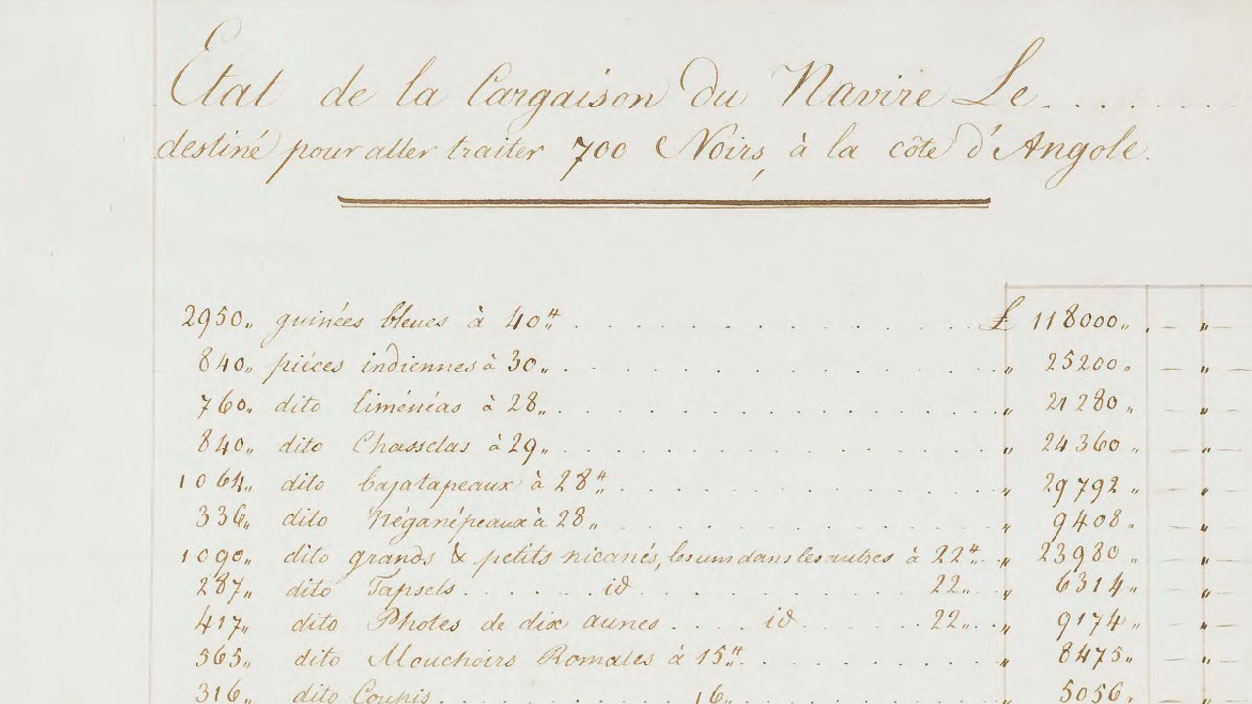 Etat de la Cargaison du Navire Le..........
destiné pour aller traiter 700 Noirs, à la côte d'Angole.
2950,, guinées bleues à 40⁺⁺ £ 118000,, . — ,,
840,, piéces indiennes à 30,, ,, 25200,, — ,, —
760,, dito liménéas à 28,, ,, 21280,, — ,, —
840,, dito Chasselas à 29,, ,, 24360,, — ,, —
1064,, dito bajatapeaux à 28⁺⁺ ,, 29792,, — ,, —
336,, dito Néganépeaux à 28,, ,, 9408,, — ,, —
1090,, dito grands & petits nicanés, les uns dans les autres à 22⁺⁺ ,, 23980,, — ,, —
287,, dito Tapsels id 22,, ,, 6314,, — ,, —
417,, dito Photes de dix aunes id 22,, ,, 9174,, — ,, —
565,, dito Mouchoirs Romales à 15⁺⁺ ,, 8475,, — ,, —
316,, dito Coupis 16,, ,, 5056,, — ,, —